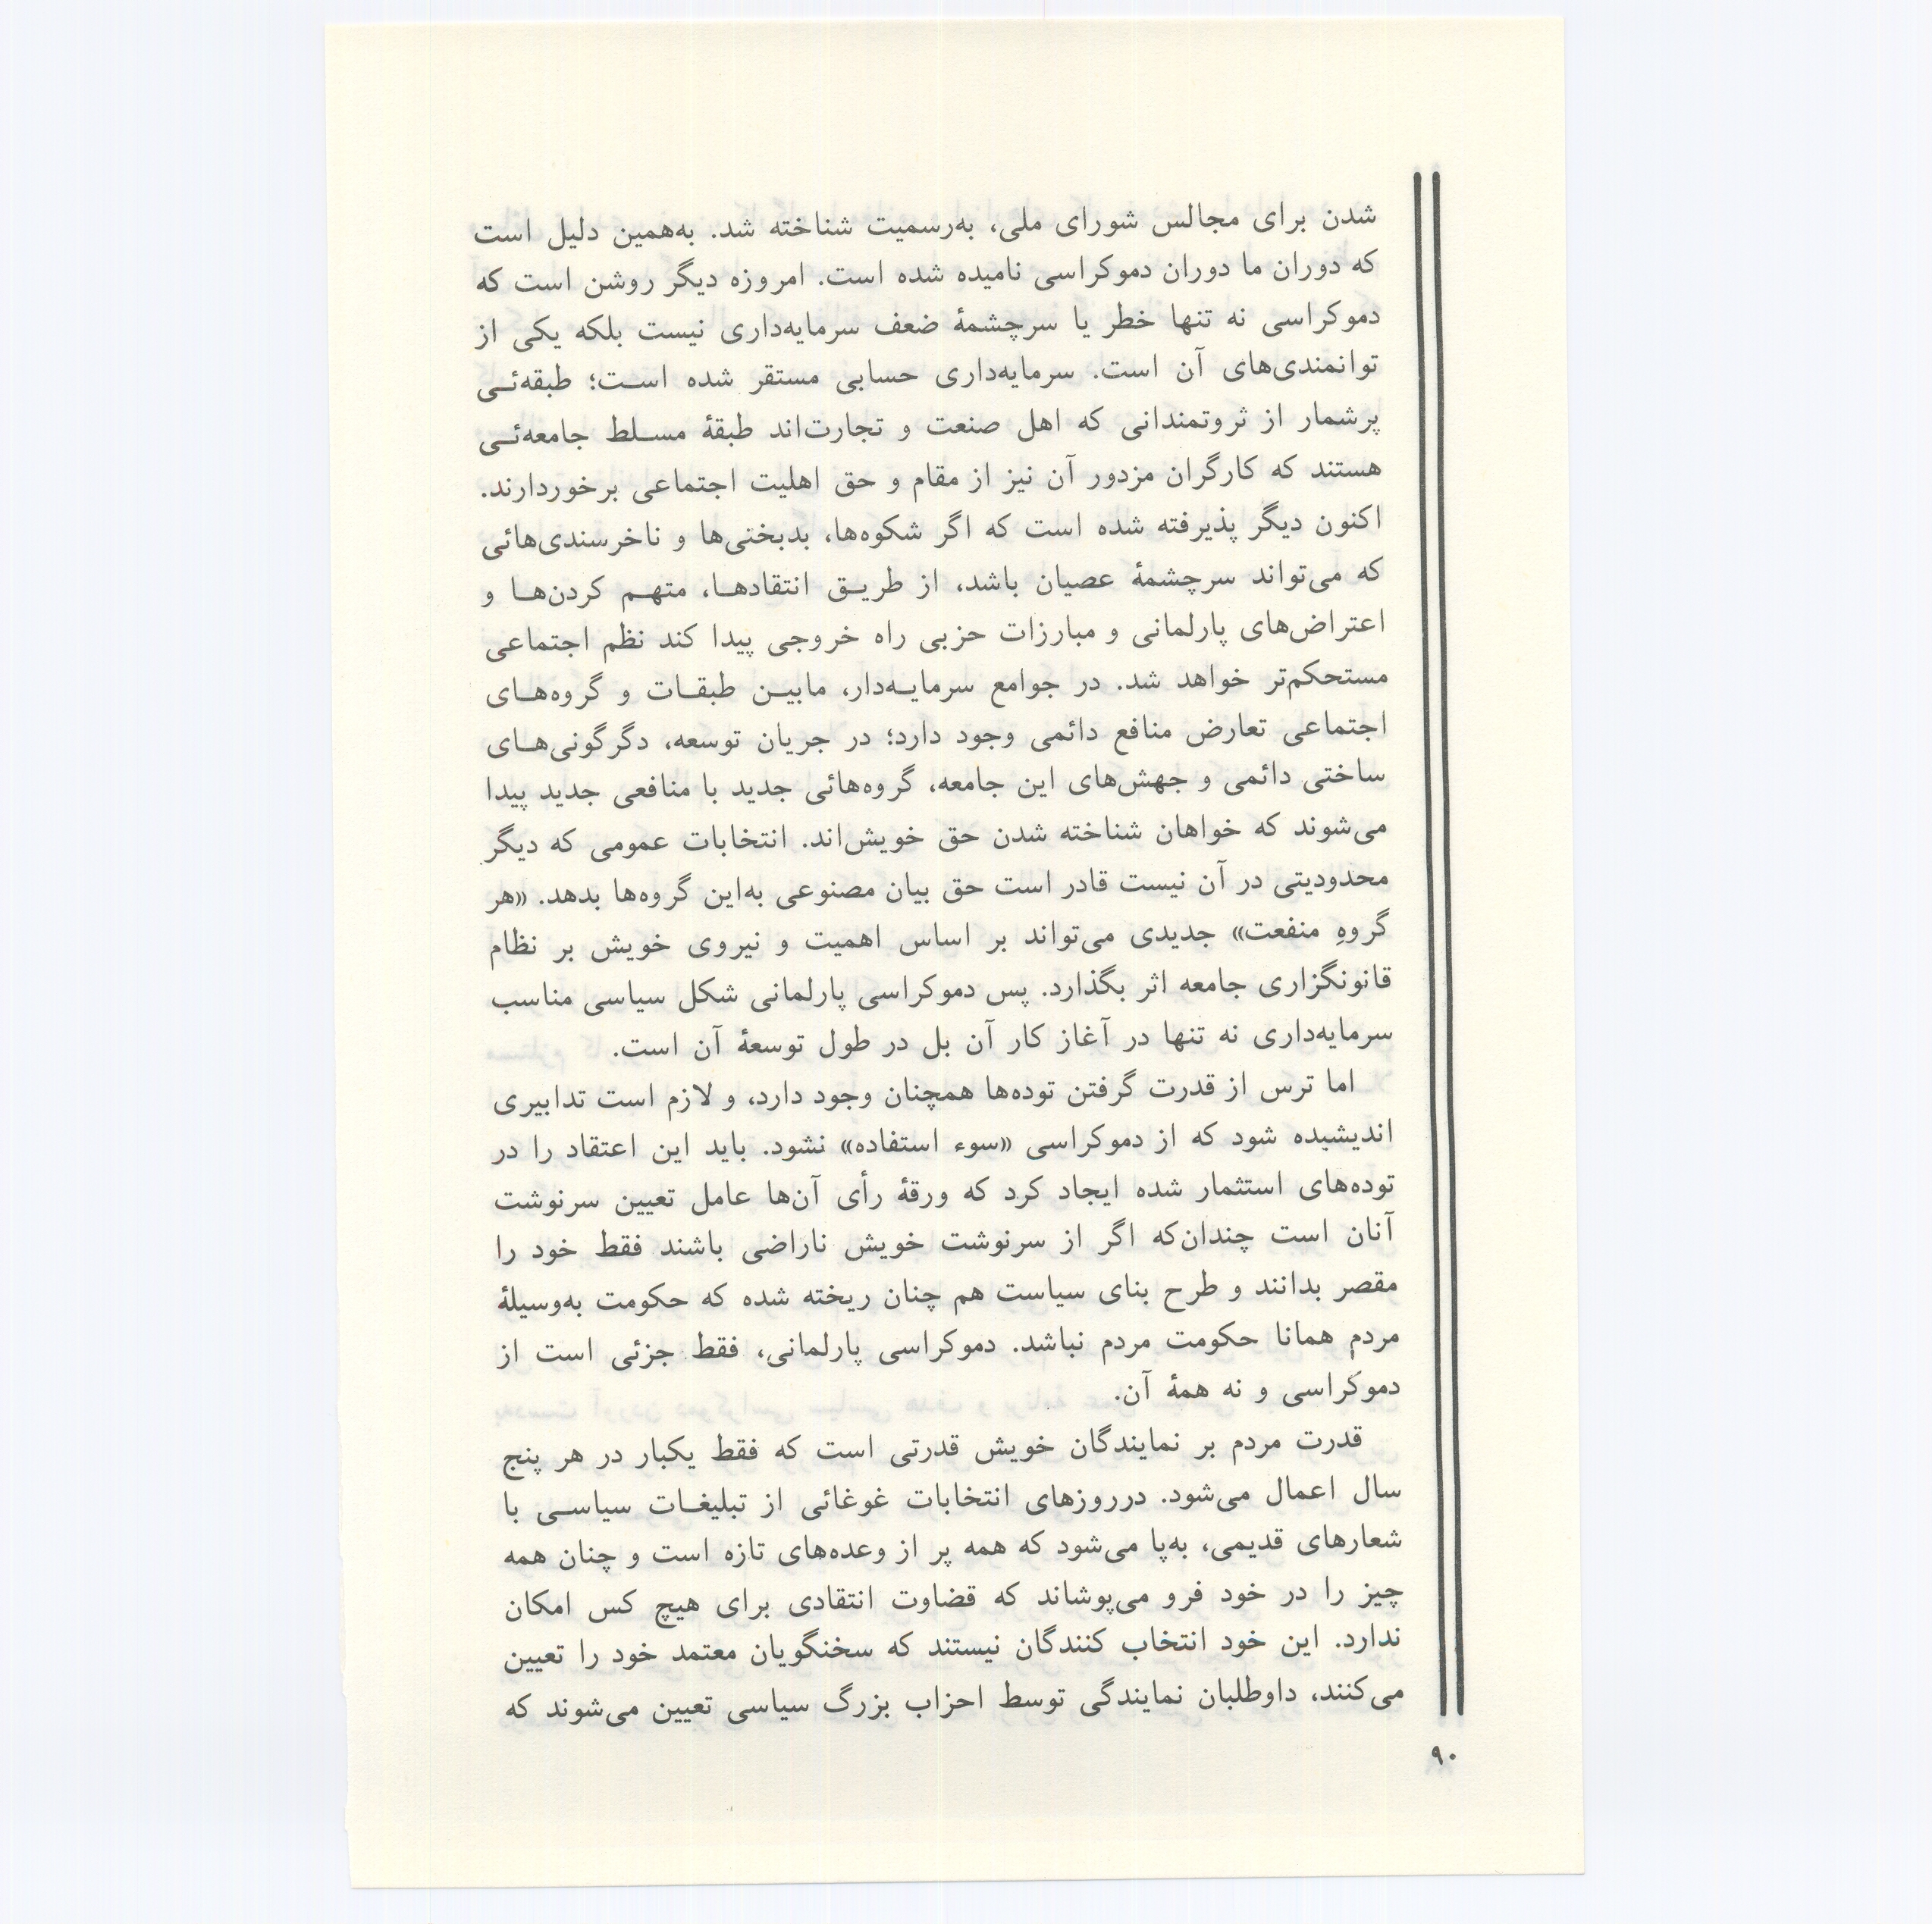 شدن برای مجالس شورای ملی، به‌رسمیت شناخته شد. به‌همین دلیل است
که دوران ما دوران دموکراسی نامیده شده است. امروزه دیگر روشن است که
دموکراسی نه تنها خطر یا سرچشمهٔ ضعف سرمایه‌داری نیست بلکه یکی از
توانمندی‌های آن است. سرمایه‌داری حسابی مستقر شده است؛ طبقه‌ئی
پرشمار از ثروتمندانی که اهل صنعت و تجارت‌اند طبقهٔ مسلط جامعه‌ئی
هستند که کارگران مزدور آن نیز از مقام و حق اهلیت اجتماعی برخوردارند.
اکنون دیگر پذیرفته شده است که اگر شکوه‌ها، بدبختی‌ها و ناخرسندی‌هائی
که می‌تواند سرچشمهٔ عصیان باشد، از طریق انتقادها، متهم کردن‌ها و
اعتراض‌های پارلمانی و مبارزات حزبی راه خروجی پیدا کند نظم اجتماعی
مستحکم‌تر خواهد شد. در جوامع سرمایه‌دار، مابین طبقات و گروه‌های
اجتماعی تعارض منافع دائمی وجود دارد؛ در جریان توسعه، دگرگونی‌های
ساختی دائمی و جهش‌های این جامعه، گروه‌هائی جدید با منافعی جدید پیدا
می‌شوند که خواهان شناخته شدن حق خویش‌اند. انتخابات عمومی که دیگر
محدودیتی در آن نیست قادر است حق بیان مصنوعی به‌این گروه‌ها بدهد. «هر
گروهِ منفعت» جدیدی می‌تواند بر اساس اهمیت و نیروی خویش بر نظام
قانونگزاری جامعه اثر بگذارد. پس دموکراسی پارلمانی شکل سیاسی مناسب
سرمایه‌داری نه تنها در آغاز کار آن بل در طول توسعهٔ آن است.
اما ترس از قدرت گرفتن توده‌ها همچنان وجود دارد، و لازم است تدابیری
اندیشیده شود که از دموکراسی «سوء استفاده» نشود. باید این اعتقاد را در
توده‌های استثمار شده ایجاد کرد که ورقهٔ رأی آن‌ها عامل تعیین سرنوشت
آنان است چندان‌که اگر از سرنوشت خویش ناراضی باشند فقط خود را
مقصر بدانند و طرح بنای سیاست هم چنان ریخته شده که حکومت به‌وسیلهٔ
مردم همانا حکومت مردم نباشد. دموکراسی پارلمانی، فقط جزئی است از
دموکراسی و نه همهٔ آن.
قدرت مردم بر نمایندگان خویش قدرتی است که فقط یکبار در هر پنج
سال اعمال می‌شود. درروزهای انتخابات غوغائی از تبلیغات سیاسی با
شعارهای قدیمی، به‌پا می‌شود که همه پر از وعده‌های تازه است و چنان همه
چیز را در خود فرو می‌پوشاند که قضاوت انتقادی برای هیچ کس امکان
ندارد. این خود انتخاب کنندگان نیستند که سخنگویان معتمد خود را تعیین
می‌کنند، داوطلبان نمایندگی توسط احزاب بزرگ سیاسی تعیین می‌شوند که
۹۰